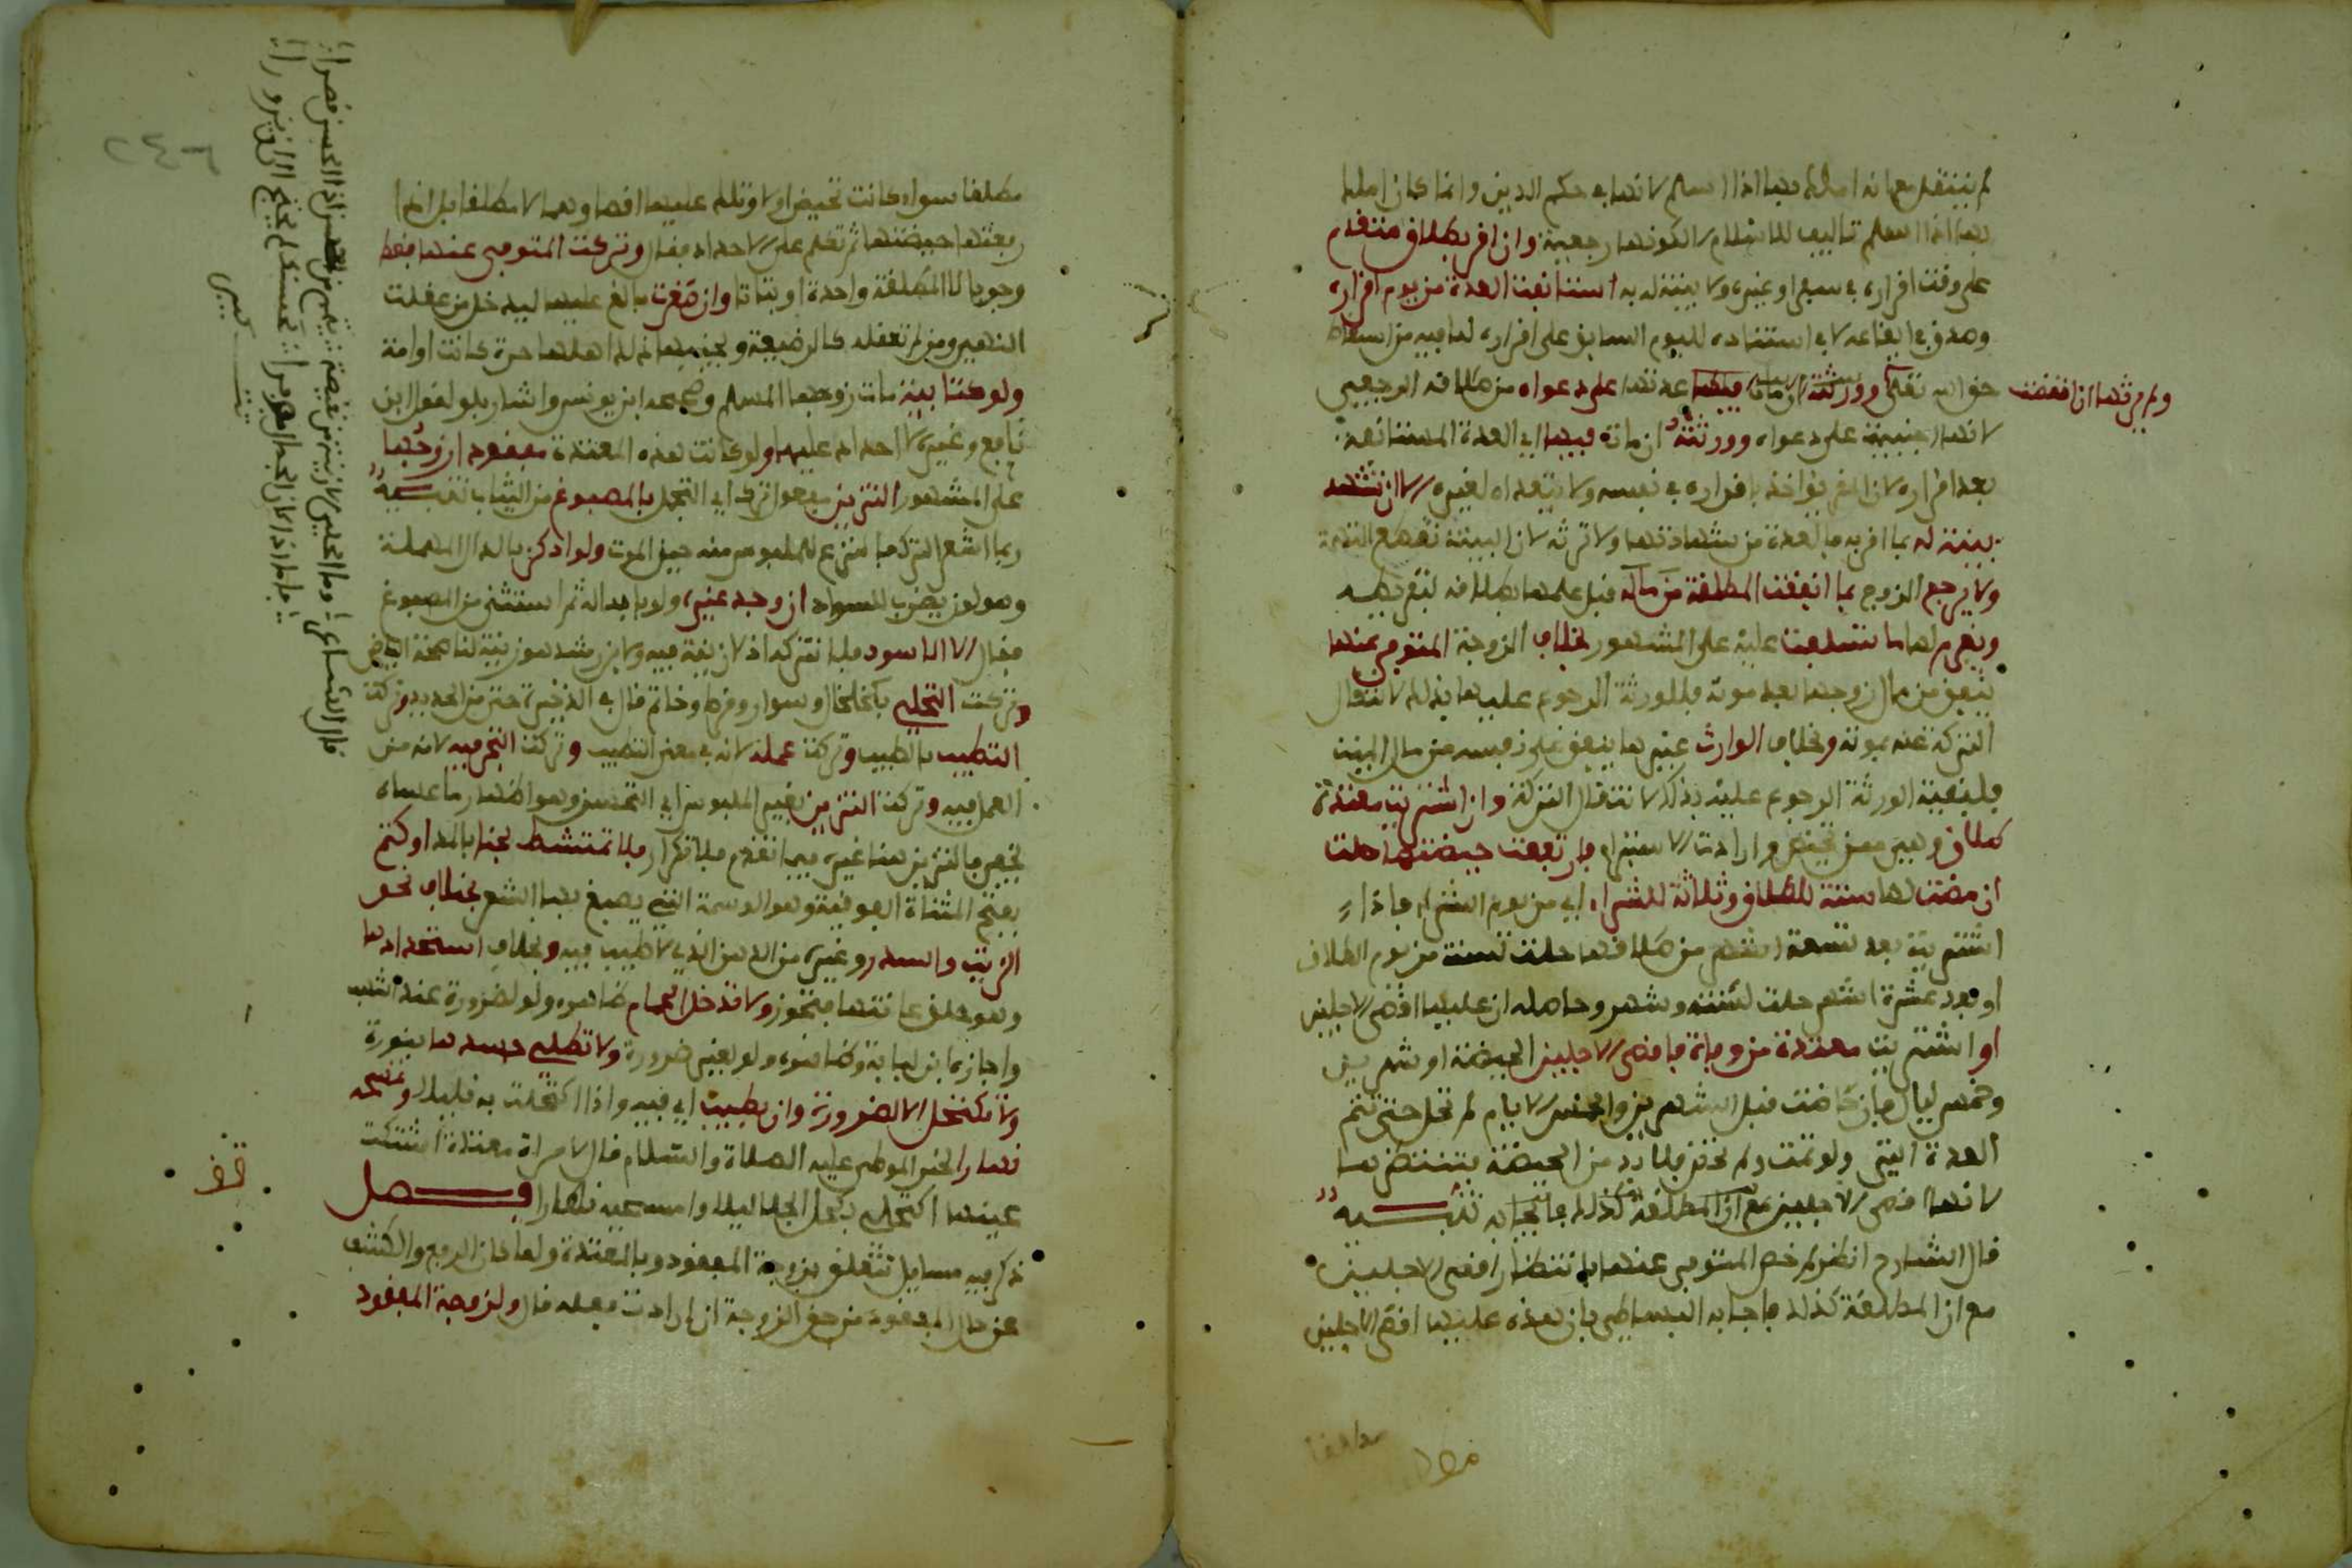 لم ينتقل مع انه املك بها اذا اسلم لانها في حكم الدين وانما كان املك
بها اذا اسلم تاليفا للاسلام لكونها رجعية وان اقر بطلاق متقدم
على وقت اقراره في سفر او غيره ولا بينة له به استانفت العدة من يوم اقراره
وصدق في ايقاعه لا في استناده لليوم السابق على اقراره لما فيه من اسقاط
حق الله تعلى وورثته ان مات فيها عدتها على دعواه من طلاقه الرجعي
ولم يرثها ان انقضت
لانها اجنبية على دعواه وورثته ان مات فيها اي العدة المستانفة
بعد اقراره لان المقر يؤاخذ باقراره في نفسه ولا يتعداه لغيره الا ان تشهد
بينة له بما اقر به فالعدة من شهادتها ولا ترثه لان البينة تقطع التهمة
ولا يرجع الزوج بما انفقت المطلقة من ماله قبل علمها بطلاقه لتفريطه
ويغرم لها ما تسلفت عليه على المشهور بخلاف الزوجة المتوفى عنها
تنفق من مال زوجها بعد موته فللورثة الرجوع عليها بذلك لانتقال
التركة عنه بموته وبخلاف الوارث غيرها ينفق على نفسه من مال الميت
فلبقية الورثة الرجوع عليه بذلك لانتقال التركة وان اشتريت معتدة
طلاق وهي ممن تحيض وارادت الاستبراء فارتفعت حيضتها حلت
ان مضت لها سنة للطلاق وثلاثة للشراء اي من يوم الشراء فاذا
اشتريت بعد تسعة اشهر من طلاقها حلت لسنة من يوم الطلاق
او بعد عشرة اشهر حلت لسنة وشهر وحاصله ان عليها اقصى الاجلين
او اشتريت معتدة من وفاة فاقصى الاجلين الحيضة او شهرين
وخمس ليال فان حاضت قبل الشهرين والخمس الايام لم تحل حتى تتم
العدة التي ولو تمت ولم تحض فلا بد من الحيضة ينتظر بها
لانها اقصى الاجلين مع ان المطلقة كذلك تنبيه
قال الشارح انظر لم خص المتوفى عنها بانتظار اقصى الاجلين
مع ان المطلقة كذلك فاجابه البساطي بان هذه عليها اقصى الاجلين
مطلقا سواء كانت تحيض او لا وتلك عليها اقصاهما لا مطلقا بل ان
رفعتها حيضتها ثم تكلم على الاحداد فقال وتركت المتوفى عنها فقط
وجوبا لا المطلقة واحدة او بتاتا وان صغرت بالغ عليها ليدخل من عقلت
النهي ومن لم تعقله كالرضيعة ويجنبها ذلك اهلها حرة كانت او امة
ولو كتابية مات زوجها المسلم وصححه ابن يونس واشار بلو لقول ابن
نافع وغيره لا احداد عليها ولو كانت هذه المعتدة مفقود زوجها
على المشهور التزين مفعول ترك اي التجمل بالمصبوغ من الثياب تنبيه
ربما اشعر الترك بما تنزع الملبوس منه حين الموت ولو ادكن بالدال المهملة
وهو لون يضرب للسواد ان وجد غيره ولو بابداله ثم استثنى من المصبوغ
فقال الا الاسود فلا تتركه اذ لا زينة فيه ولابن رشد هو زينة لناصعة البياض
وتركت التحلي بكخلخال وسوار وقرط وخاتم قال في الذخيرة حتى من الحديد وتركت
التطيب بالطيب وتركت عمله لانه في معنى التطيب وتركت التجر فيه لانه من
العمل فيه وتركت التزين بغير الملبوس اي التحسن وهو اظهار ما عساه
يخص بالتزين هنا غيره فيما تقدم فلا تكرار فلا تمتشط بحنا بالمد او كتم
بفتح المثناة الفوقية وهو الوسمة التي يصبغ بها الشعر بخلاف نحو
الزيت والسدر وغيره من الدهن الذي لا طيب فيه وبخلاف استحدادها
وهو حلق عانتها فيجوز ولا تدخل الحمام ظاهره ولو لضرورة عند اشهب
واجاز ابن لبابة وظاهره ولو لغير ضرورة ولا تطلي جسدها بنورة
ولا تكتحل الا لضرورة وان بطيب اي فيه واذا اكتحلت به فليلا وتمسحه
نهارا لخبر الموطى عليه الصلاة والسلام قال لامراة معتدة اشتكت
عينها اكتحلي بكحل الجلا ليلا وامسحيه نهارا فصل
ذكر فيه مسايل تتعلق بزوجة المفقود وبالمعتدة ولما كان الرفع والكشف
عن حال المفقود من حق الزوجة ان ارادت فعله قال ولزوجة المفقود
قال الشاعر وما الحلي الا زينة من نقيصة يتمم من حسن اذا الحسن قصرا
فاما اذا كان الجمال موفرا كحسنك لم يحتج الى ان يزورا
تتميم
قف
٢٤٦